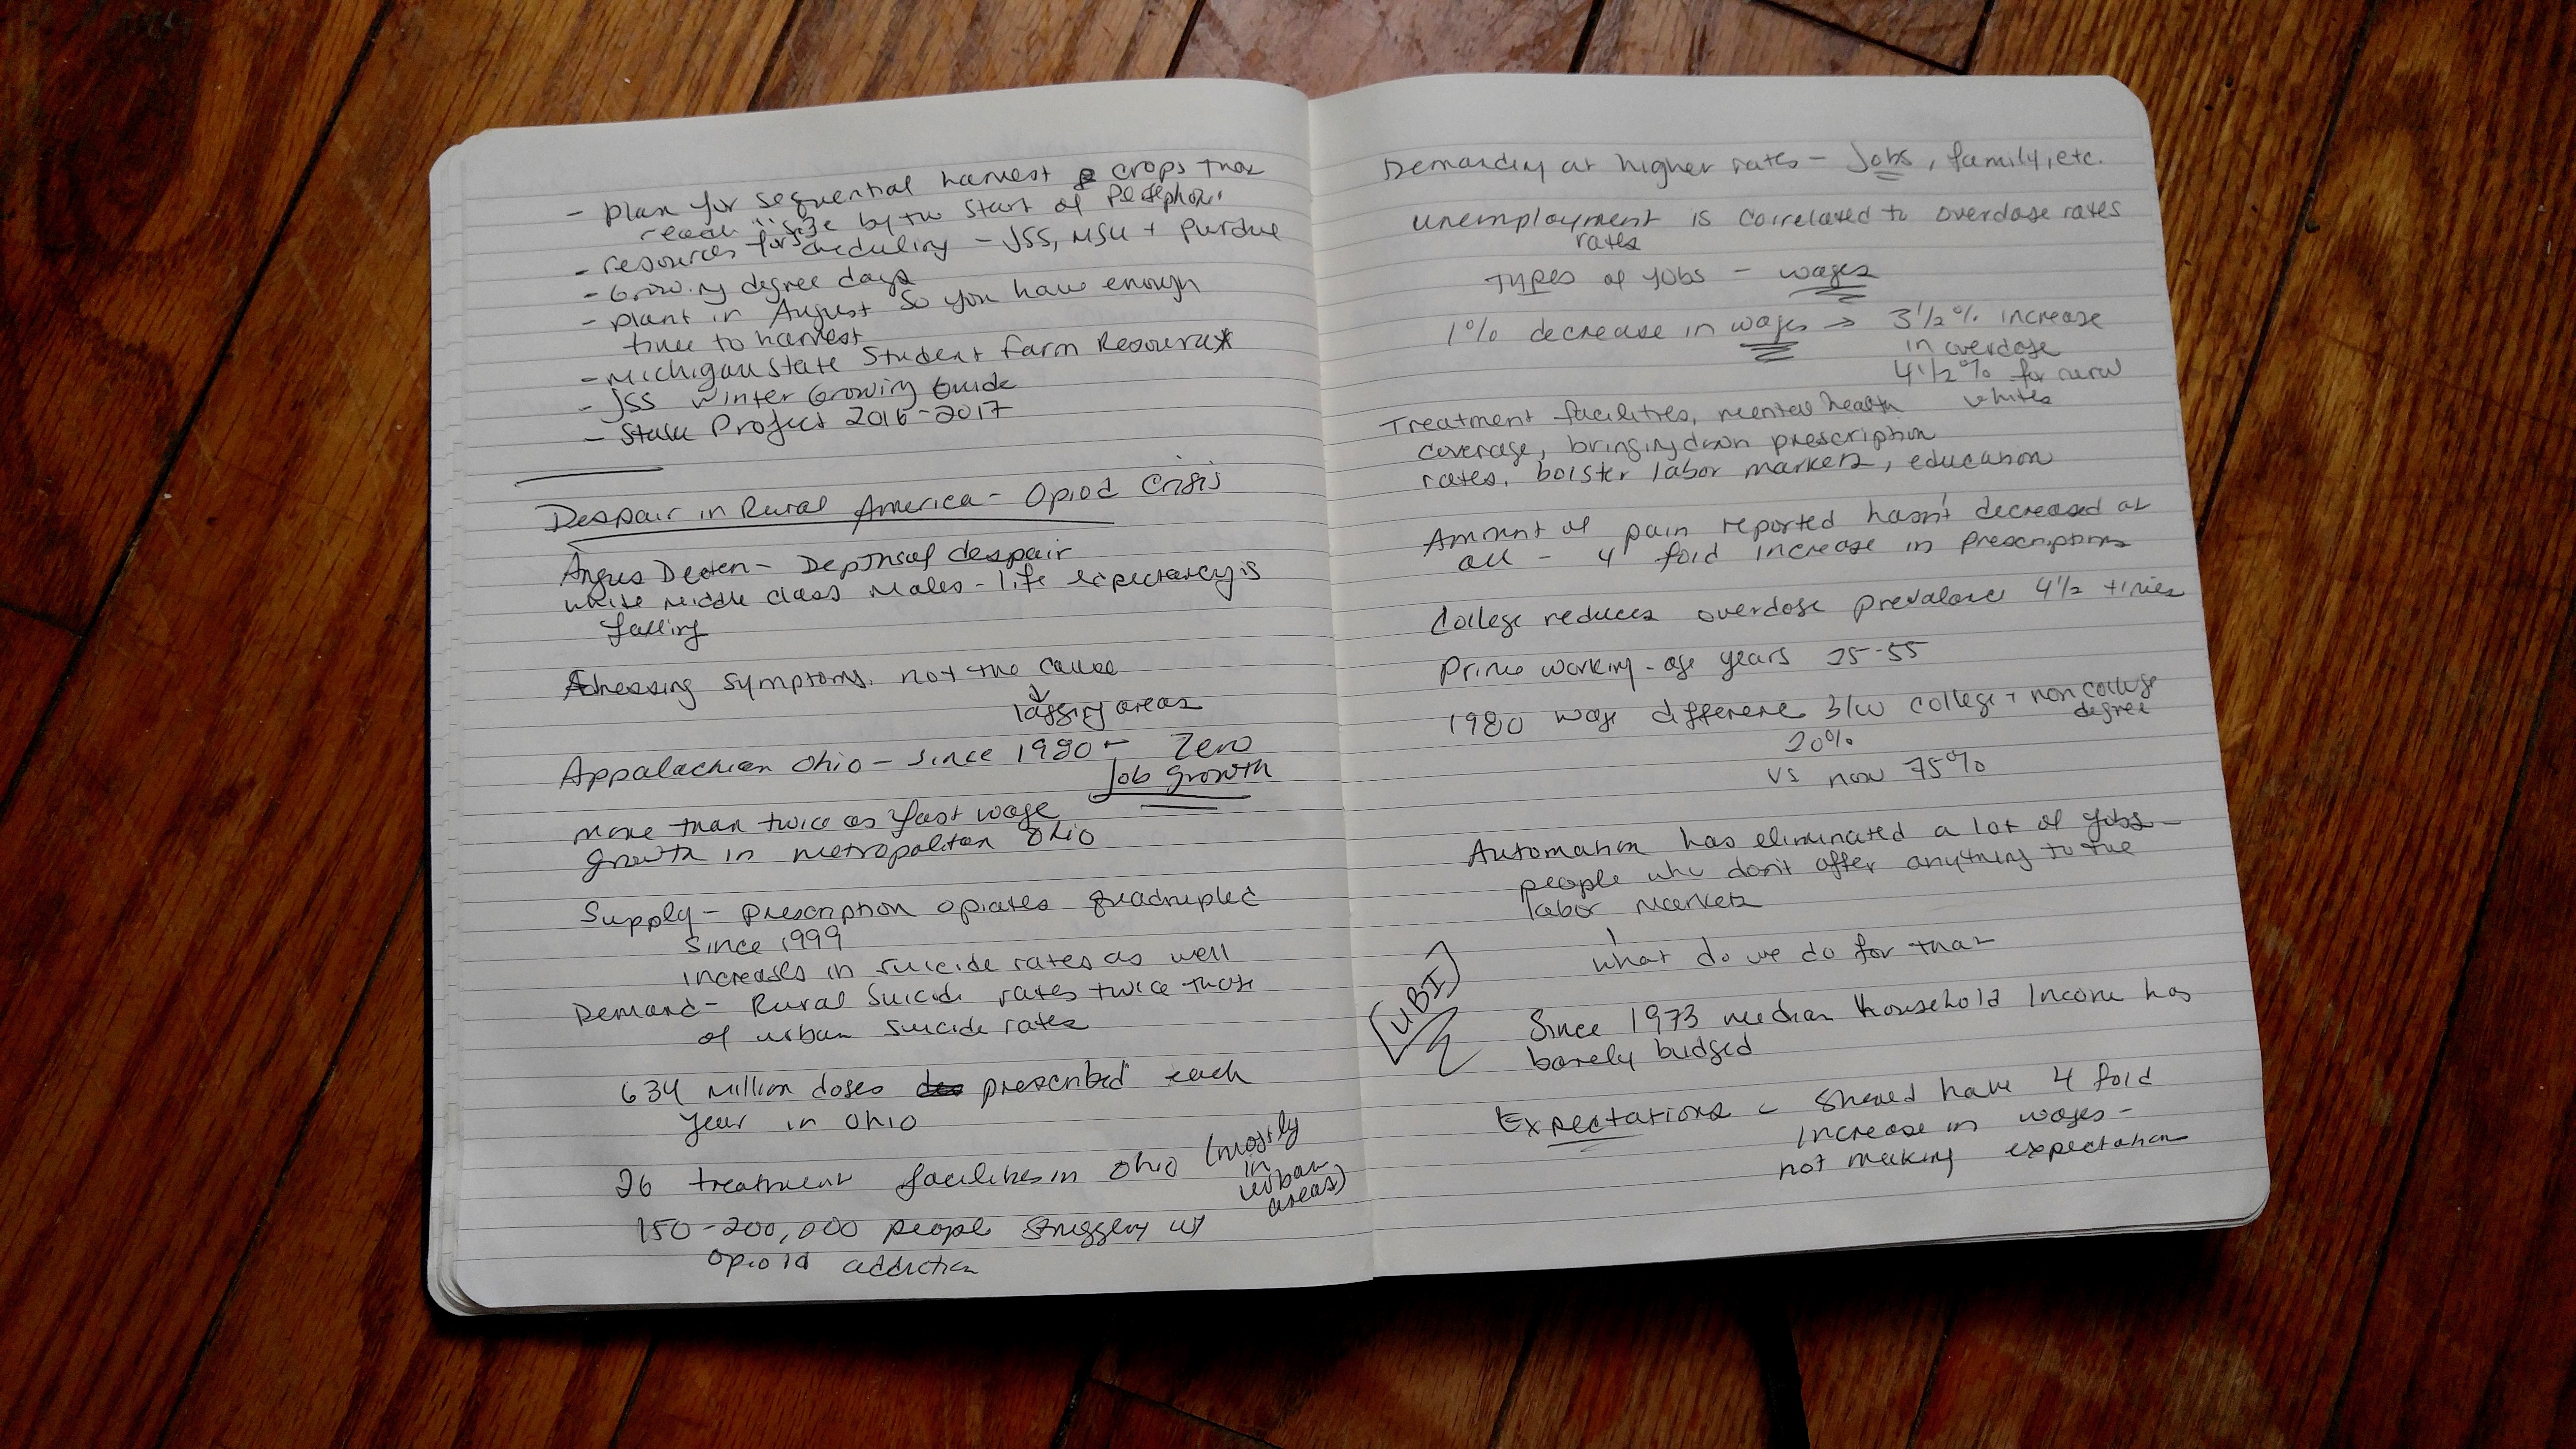 - plan for sequential harvest crops that
reach size by the start of Persephone
- resources for scheduling - JSS, MSU + Purdue
- Growing degree days
- plant in August so you have enough
time to harvest
- Michigan State Student Farm Resource*
- JSS Winter Growing Guide
- Project 2016-2017
Despair in Rural America - Opiod Crisis
Angus Deaten - Depths of despair
white middle class males - life expectancy is
falling
symptoms, not the cause
lagging areas
Appalachian Ohio - since 1980 - Zero
job growth
more than twice as fast wage
growth in metropolitan Ohio
Supply - prescription opiates quadrupled
since 1999
increases in suicide rates as well
Demand - Rural Suicide rates twice those
of urban suicide rates
634 million doses prescribed each
year in Ohio
26 treatment facilities in Ohio (mostly
in
urban
areas)
150-200,000 people struggling w/
opioid addiction
Demanding at higher rates - Jobs, family, etc.
unemployment is correlated to overdose rates
rates
Types of jobs - wages
1% decrease in wages → 3 1/2% increase
in overdose
4 1/2% for rural
whites
Treatment facilities, mental health
coverage, bringing down prescription
rates, bolster labor markets, education
Amount of pain reported hasn't decreased at
all - 4 fold increase in prescriptions
College reduces overdose prevalence 4 1/2 times
Prime working-age years 25-55
1980 wage difference b/w college + non college
degree
20%
vs now 75%
Automation has eliminated a lot of jobs -
people who don't offer anything to the
labor markets
what do we do for that
[UBI]
Since 1973 median household income has
barely budged
Expectations - should have 4 fold
increase in wages -
not making expectation